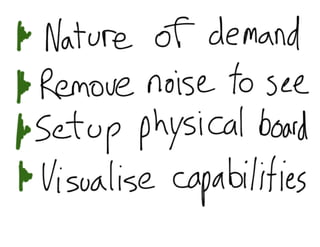 Nature of demand
Remove noise to see
Setup physical board
Visualise capabilities